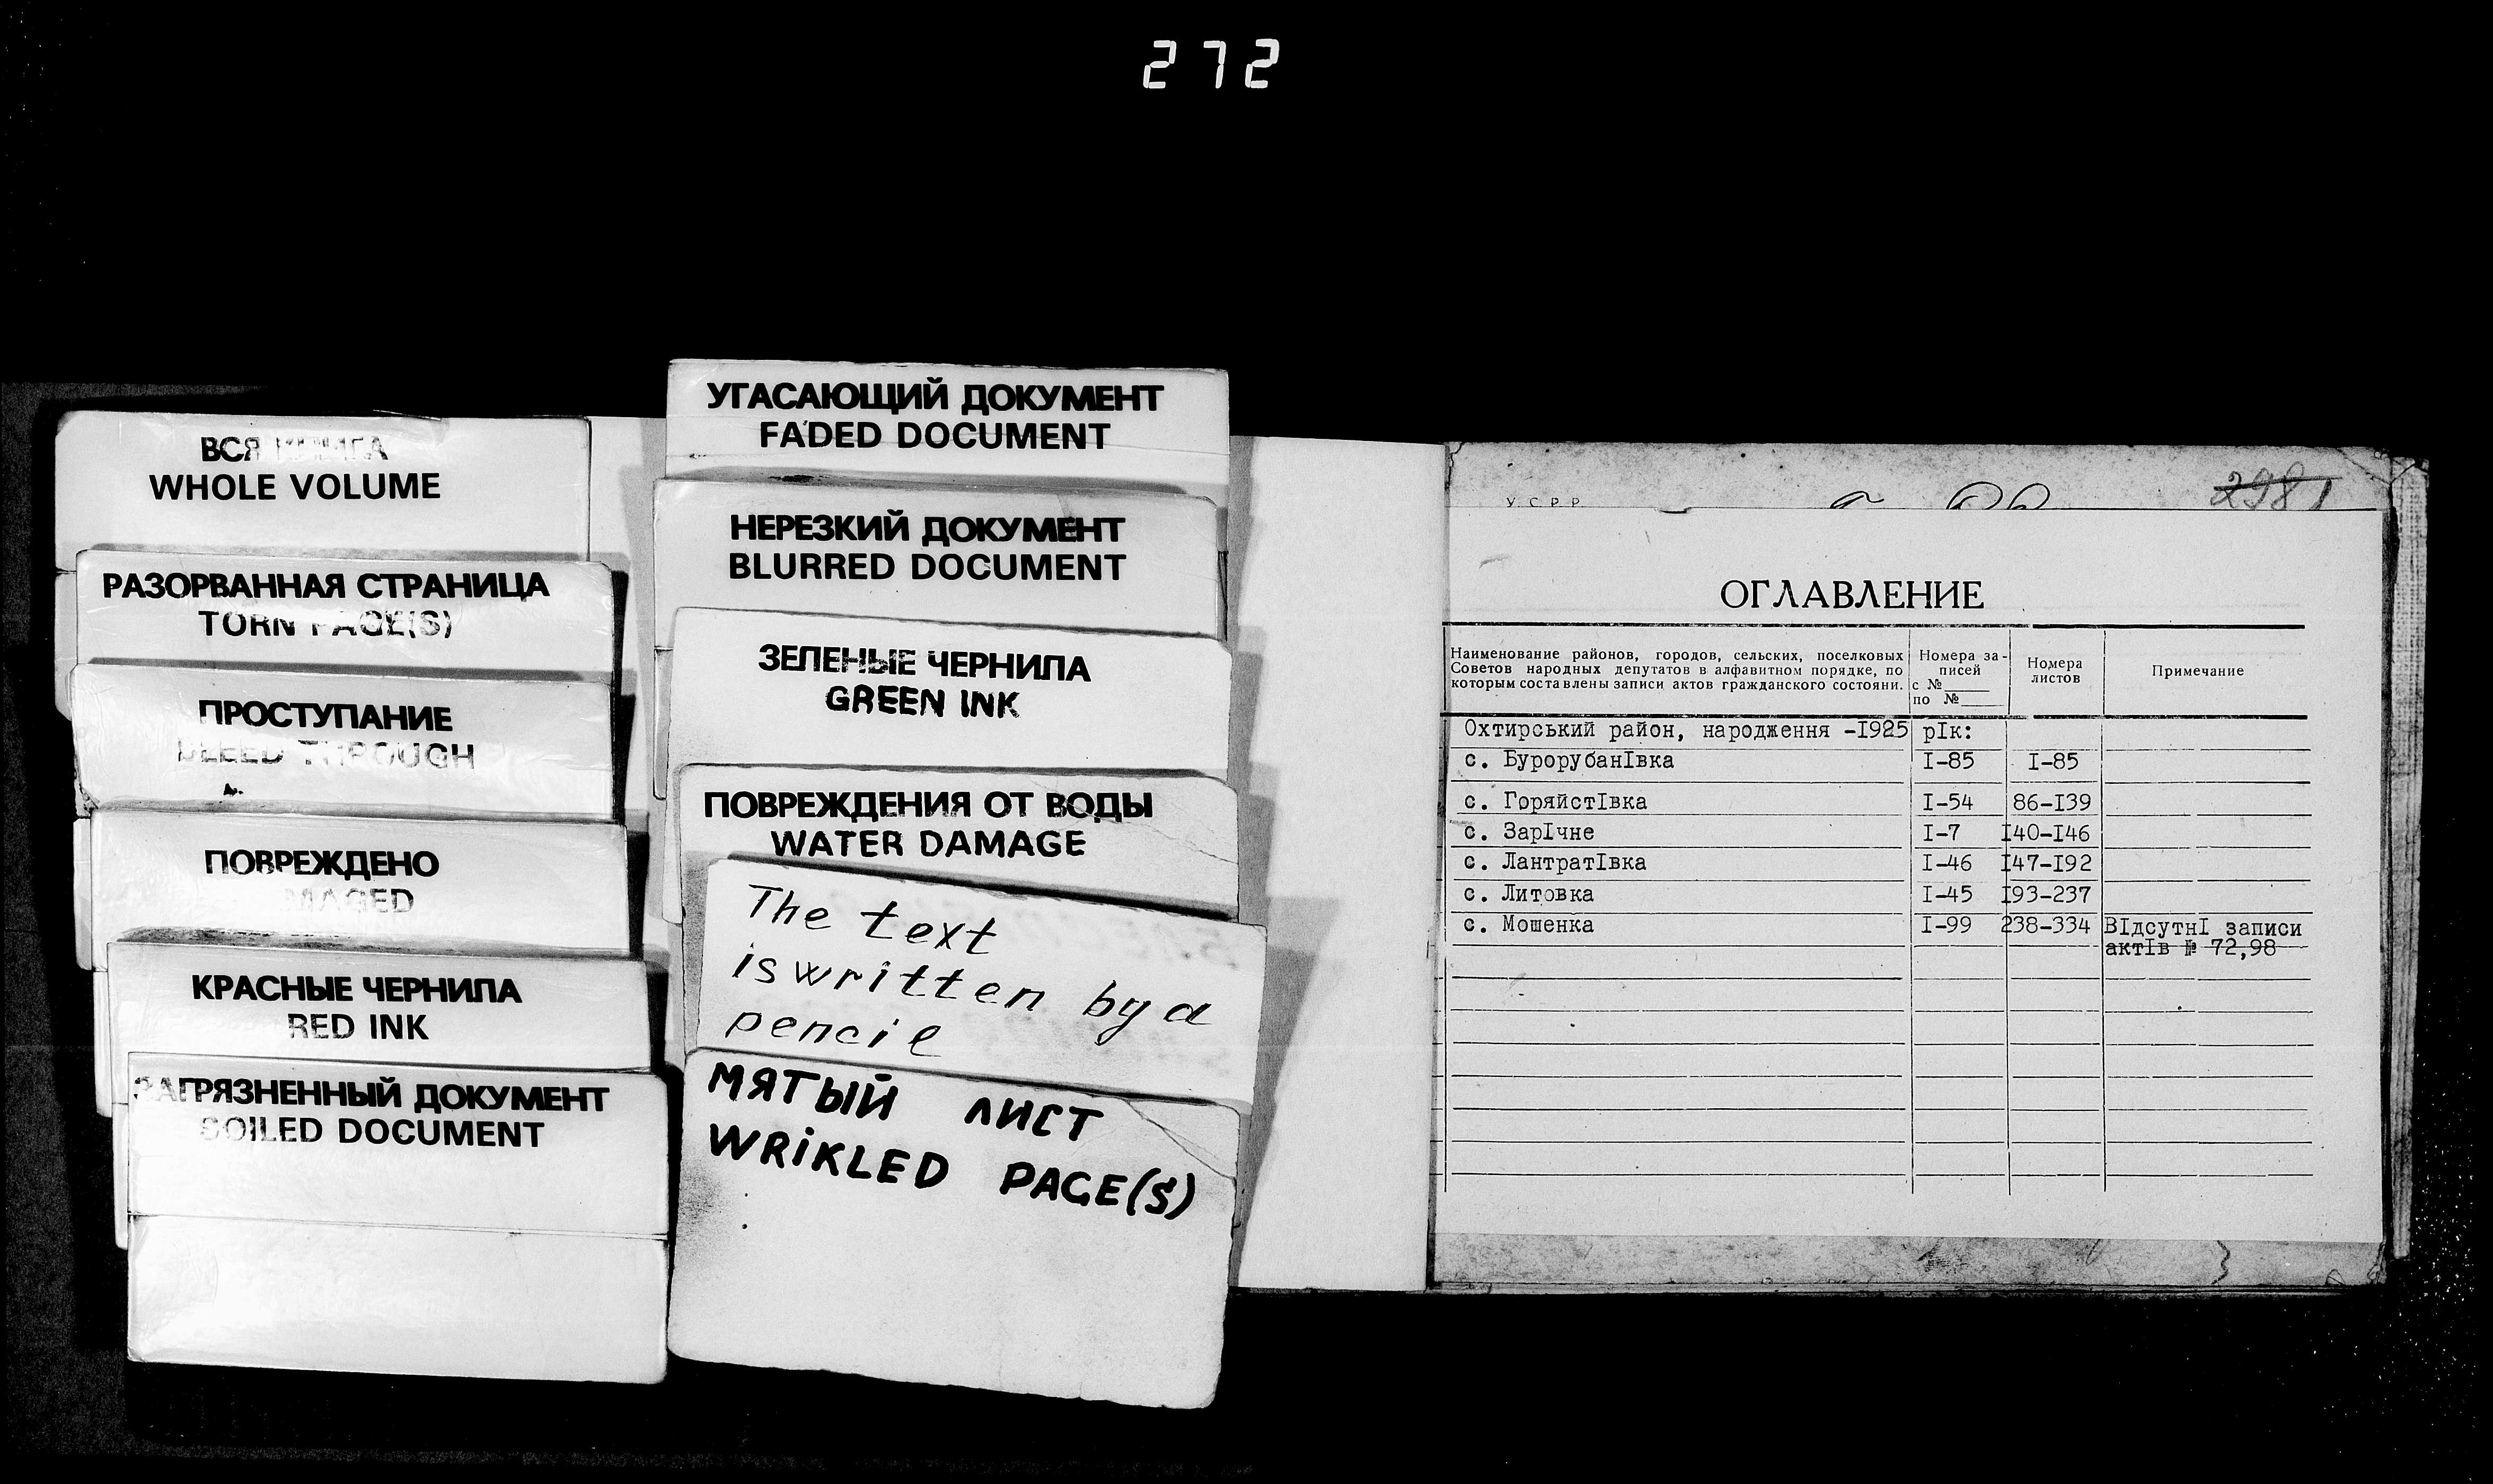 272
ВСЯ КНИГА
WHOLE VOLUME
РАЗОРВАННАЯ СТРАНИЦА
TORN PAGE(S)
ПРОСТУПАНИЕ
BLEED THROUGH
ПОВРЕЖДЕНО
DAMAGED
КРАСНЫЕ ЧЕРНИЛА
RED INK
ЗАГРЯЗНЕННЫЙ ДОКУМЕНТ
SOILED DOCUMENT
УГАСАЮЩИЙ ДОКУМЕНТ
FADED DOCUMENT
НЕРЕЗКИЙ ДОКУМЕНТ
BLURRED DOCUMENT
ЗЕЛЕНЫЕ ЧЕРНИЛА
GREEN INK
ПОВРЕЖДЕНИЯ ОТ ВОДЫ
WATER DAMAGE
The text
is written by a
pencil
МЯТЫЙ ЛИСТ
WRiKLED PAGE(S)
У.С.Р.Р.
2981
ОГЛАВЛЕНИЕ
Наименование районов, городов, сельских, поселковых
Советов народных депутатов в алфавитном порядке, по
которым составлены записи актов гражданского состояни.
Номера за-
писей
с №
по №
Номера
листов
Примечание
Охтирський район, народження -I925 рIк:
с. БурорубанIвка I-85 I-85
с. ГоряйстIвка I-54 86-I39
с. ЗарIчне I-7 I40-I46
с. ЛантратIвка I-46 I47-I92
с. Литовка I-45 I93-237
с. Мошенка I-99 238-334 ВIдсутнI записи
актIв № 72,98